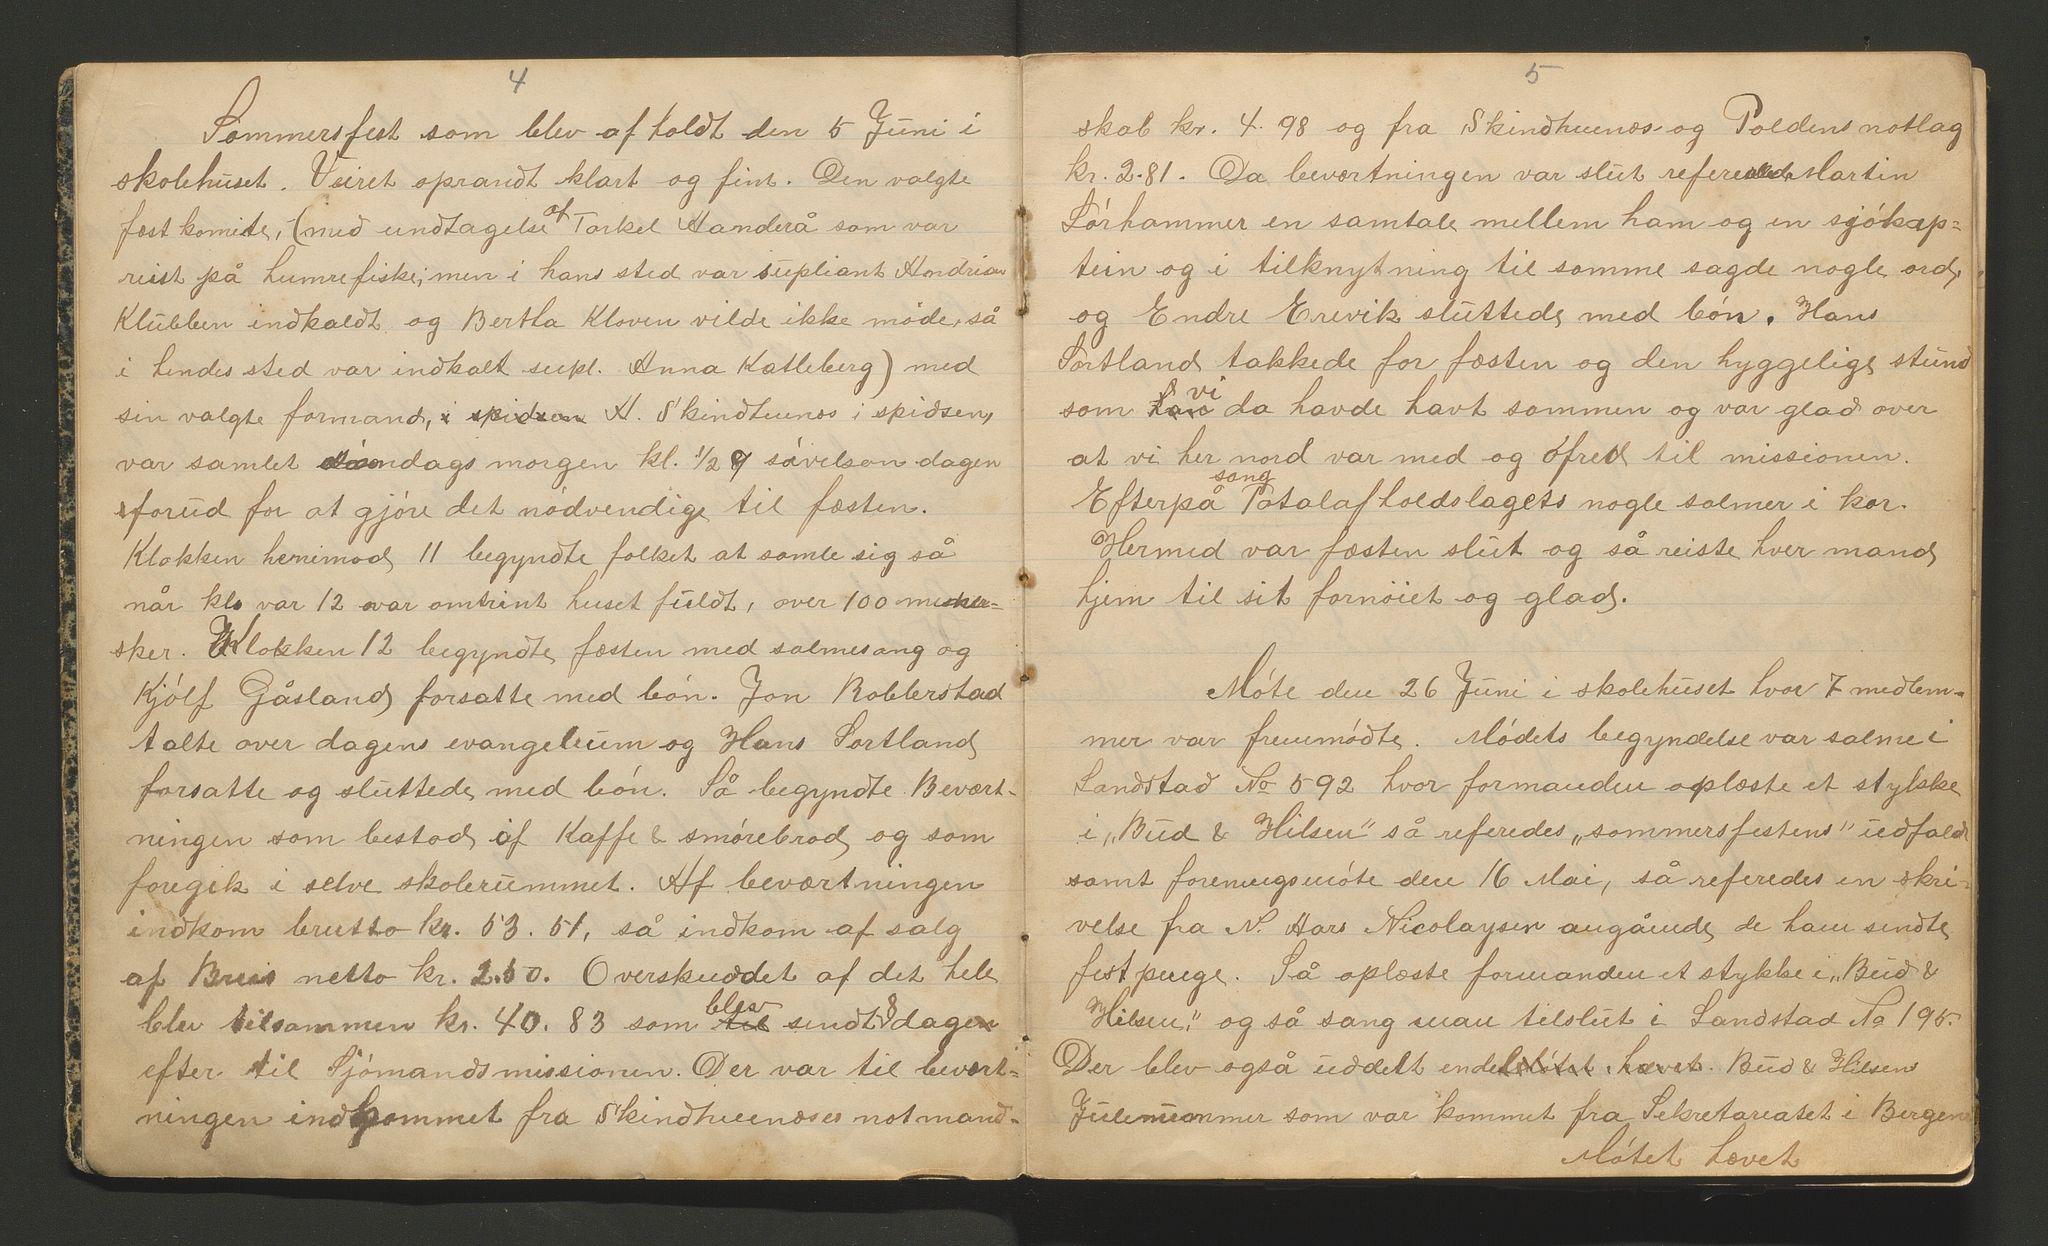 4
Sommersfest som blev afholdt den 5 Juni i
skolehuset. Veiret oprandt klart og fint. Den valgte
fæstkomite, (med undtagelse af Torkel Handerå som var
reist på humrefiske, men i hans sted var supliant Andrias
Klubben indkaldt og Bertha Kloven vilde ikke møde, så
i hendes sted var indkalt supl. Anna Katleberg) med
sin valgte formand, i spidsen H. Skindhuenæs i spidsen,
var samlet søndags morgen kl. 1/2 9 såvelson dagen
forud for at gjóre det nødvendige til fæsten.
Klokken henimod 11 begyndte folket at samle sig så
når kl. var 12 var omtrint huset fuldt, over 100 mennesker-
sker. Klokken 12 begyndte fæsten med salmesang og
Kjólf Gåsland forsatte med bón. Jon Robberstad
talte over dagens evangelium og Hans Sortland
forsatte og sluttede med bón. Så begyndte Bevært-
ningen som bestod af Kaffe & smórebrod og som
foregik i selve skolerummet. Af beværtningen
indkom brutto kr. 53.51, så indkom af salg
af Brus netto kr. 2.50. Overskuddet af det hele
blev tilsammen kr. 40.83 som blev til sendt 8 dagen
efter til Sjómandsmissionen. Der var til bevært-
ningen indkommet fra Skindhuenæses notmand-
5
skab kr. 4.98 og fra Skindhuenæs og Poldens notlag
kr. 2.81. Da beværtningen var slut referede Martin
Sórhammer en samtale mellem ham og en sjókap-
tein og i tilknytning til somme sagde nogle ord,
og Endre Erevik sluttede med bón. Hans
Sortland takkede for fæsten og den hyggelige stund
som vi da havde havt sammen og var glad over
at vi her nord var med og ófred til missionen.
Efterpå sang Totalafholdslagets nogle salmer i kor.
Hermed var fæsten slut og så reiste hver mand
hjem til sit fornóiet og glad.
Móte den 26 Juni i skolehuset hvor 7 medlem-
mer var fremmódte. Módets begyndelse var salme i
Landstad No 592 hvor formanden oplæste et stykke
i „Bud & Hilsen" så referedes „sommersfestens" udfald
samt foreningsmóte den 16 Mai, så referedes en skri-
velse fra N. Aars Nicolaysen angående de ham sendte
festpenge. Så oplæste formanden et stykke i „Bud &
Hilsen", og så sang man tilslut i Landstad No 195.
Der blev også uddelt endel Mótet hævet. Bud & Hilsens
Julenummer som var kommet fra Sekretariatet i Bergen
Mótet hævet